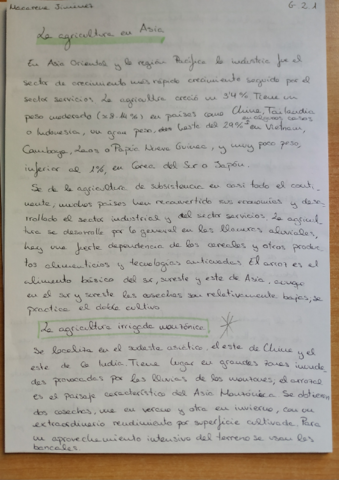 Macarena Jiménez G 2.1
La agricultura en Asia
En Asia Oriental y la región Pacífico la industria fue el
sector de crecimiento más rápido crecimiento seguido por el
sector servicios. La agricultura creció un 3'4% Tiene un
peso moderado en países como China, Tailandia
en algunos casos
o Indonesia, un gran peso, de hasta del 29% en Vietnam,
Camboya, Laos o Papúa Nueva Guinea, y muy poco peso,
inferior al 1%, en Corea del Sur o Japón.
Se da la agricultura de subsistencia en casi todo el conti-
nente, muchos países han reconvertido sus economías y desa-
rrollado el sector industrial y del sector servicios. La agricul-
tura se desarrolla por lo general en las llanuras aluviales,
hay una fuerte dependencia de los cereales y otros produc-
tos alimenticios y tecnologías anticuadas. El arroz es el
alimento básico del sur, sureste y este de Asia, aunque
en el sur y sureste las cosechas son relativamente bajas, se
practica el doble cultivo
La agricultura irrigada monzónica
Se localiza en el sudeste asiático, el este de China y el
este de la India. Tiene lugar en grandes zonas inunda-
das provocadas por las lluvias de los monzones, el arrozal
es el paisaje característico del Asia Monzónica. Se obtienen
dos cosechas, una en verano y otra en invierno, con un
extraordinario rendimiento por superficie cultivada. Para
un aprovechamiento intensivo del terreno se usan los
bancales